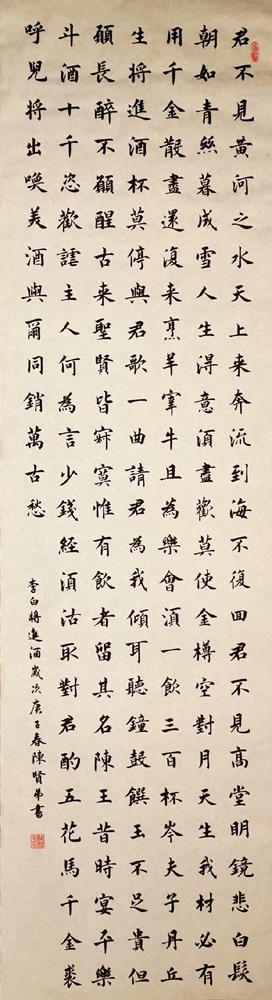 君不見黃河之水天上来奔流到海不復回君不見高堂明鏡悲白髮
朝如青絲暮成雪人生得意湏盡歡莫使金樽空對月天生我材必有
用千金散盡還復来烹羊宰牛且為樂會湏一飲三百杯岑夫子丹丘
生將進酒杯莫停與君歌一曲請君為我傾耳聽鐘鼓饌玉不足貴但
願長醉不願醒古来聖賢皆寂寞惟有飲者留其名陳王昔時宴平樂
斗酒十千恣歡謔主人何為言少錢經湏沽取對君酌五花馬千金裘
呼兒將出喚美酒與爾同銷萬古愁
李白將進酒歲次庚子春陳賢弟書